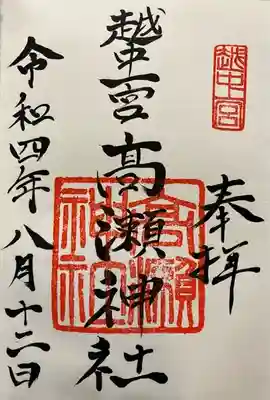 奉拝
越中一宮
越中一宮高瀬神社
高瀬神社
令和四年八月十二日